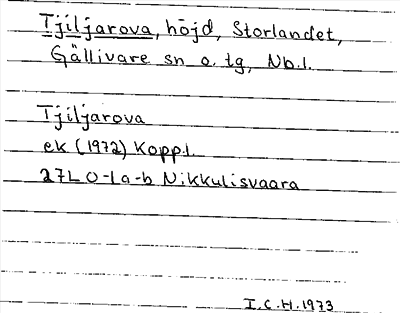 Tjiljarova, höjd, Storlandet,
Gällivare sn o. tg, Nb.l.
Tjiljarova
ek (1972) Kopp.l.
27L 0-1 a-b Nikkulisvaara
I.C.H. 1973